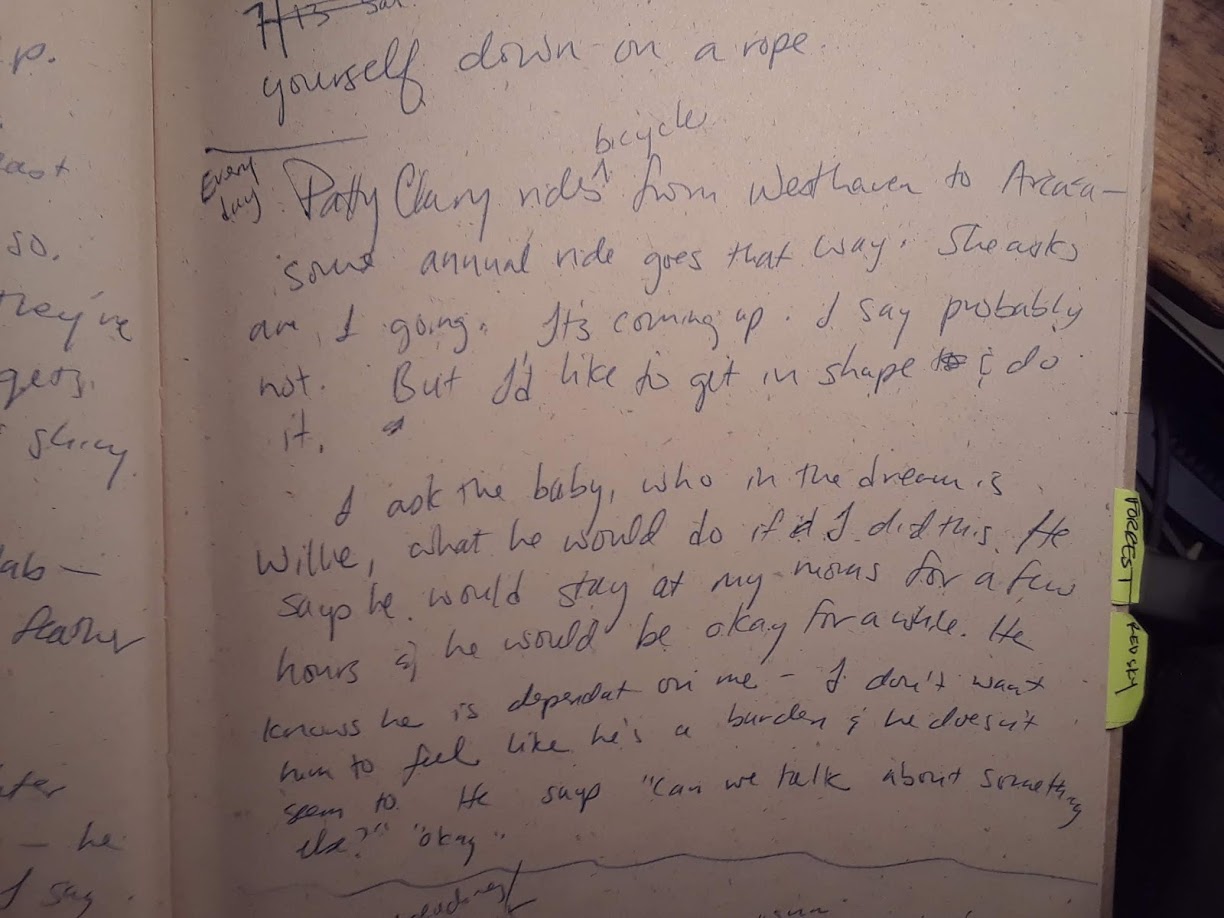 p.
east
so.
they've
gets.
shiny.
lab —
feather
— he
I say
7/13 Sat
yourself down on a rope.
bicycle
Every
day
Patty Clary rides ^ from Westhaven to Arcata —
some annual ride goes that way. She asks
am I going. Its coming up. I say probably
not. But I'd like to get in shape to & do
it.
I ask the baby, who in the dream is
Willie, what he would do if I did this. He
says he would stay at my moms for a few
hours & he would be okay for a while. He
knows he is dependat on me — I don't want
him to feel like he's a burden & he doesn't
seem to. He says "Can we talk about something
else?" "okay"
FORREST
RED SKY